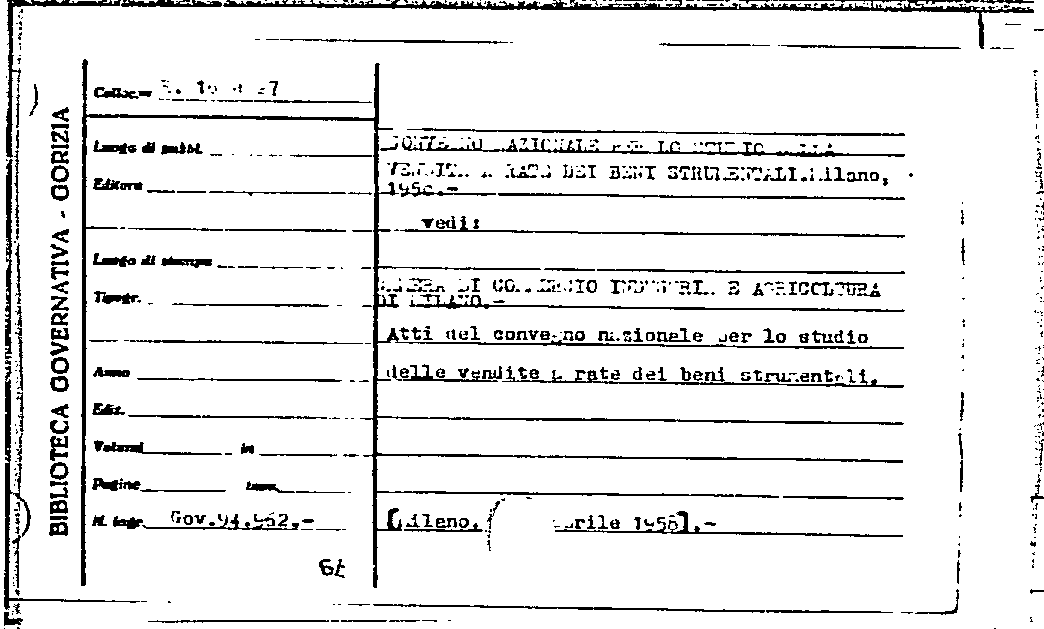 BIBLIOTECA GOVERNATIVA - GORIZIA
Colloc.ne
Luogo di pubbl.
Editore
Luogo di stampa
Tipogr.
Anno
Ediz.
Volumi in
Pagine
N. ingr. Gov.94.962.-
CONVEGNO NAZIONALE PER LO STUDIO DELLA
VENDITA A RATE DEI BENI STRUMENTALI.Milano,
1958.-
vedi:
CAMERA DI COMMERCIO INDUSTRIA E AGRICOLTURA
DI MILANO.-
Atti del convegno nazionale per lo studio
delle vendite a rate dei beni strumentali.
[Milano, aprile 1958].-